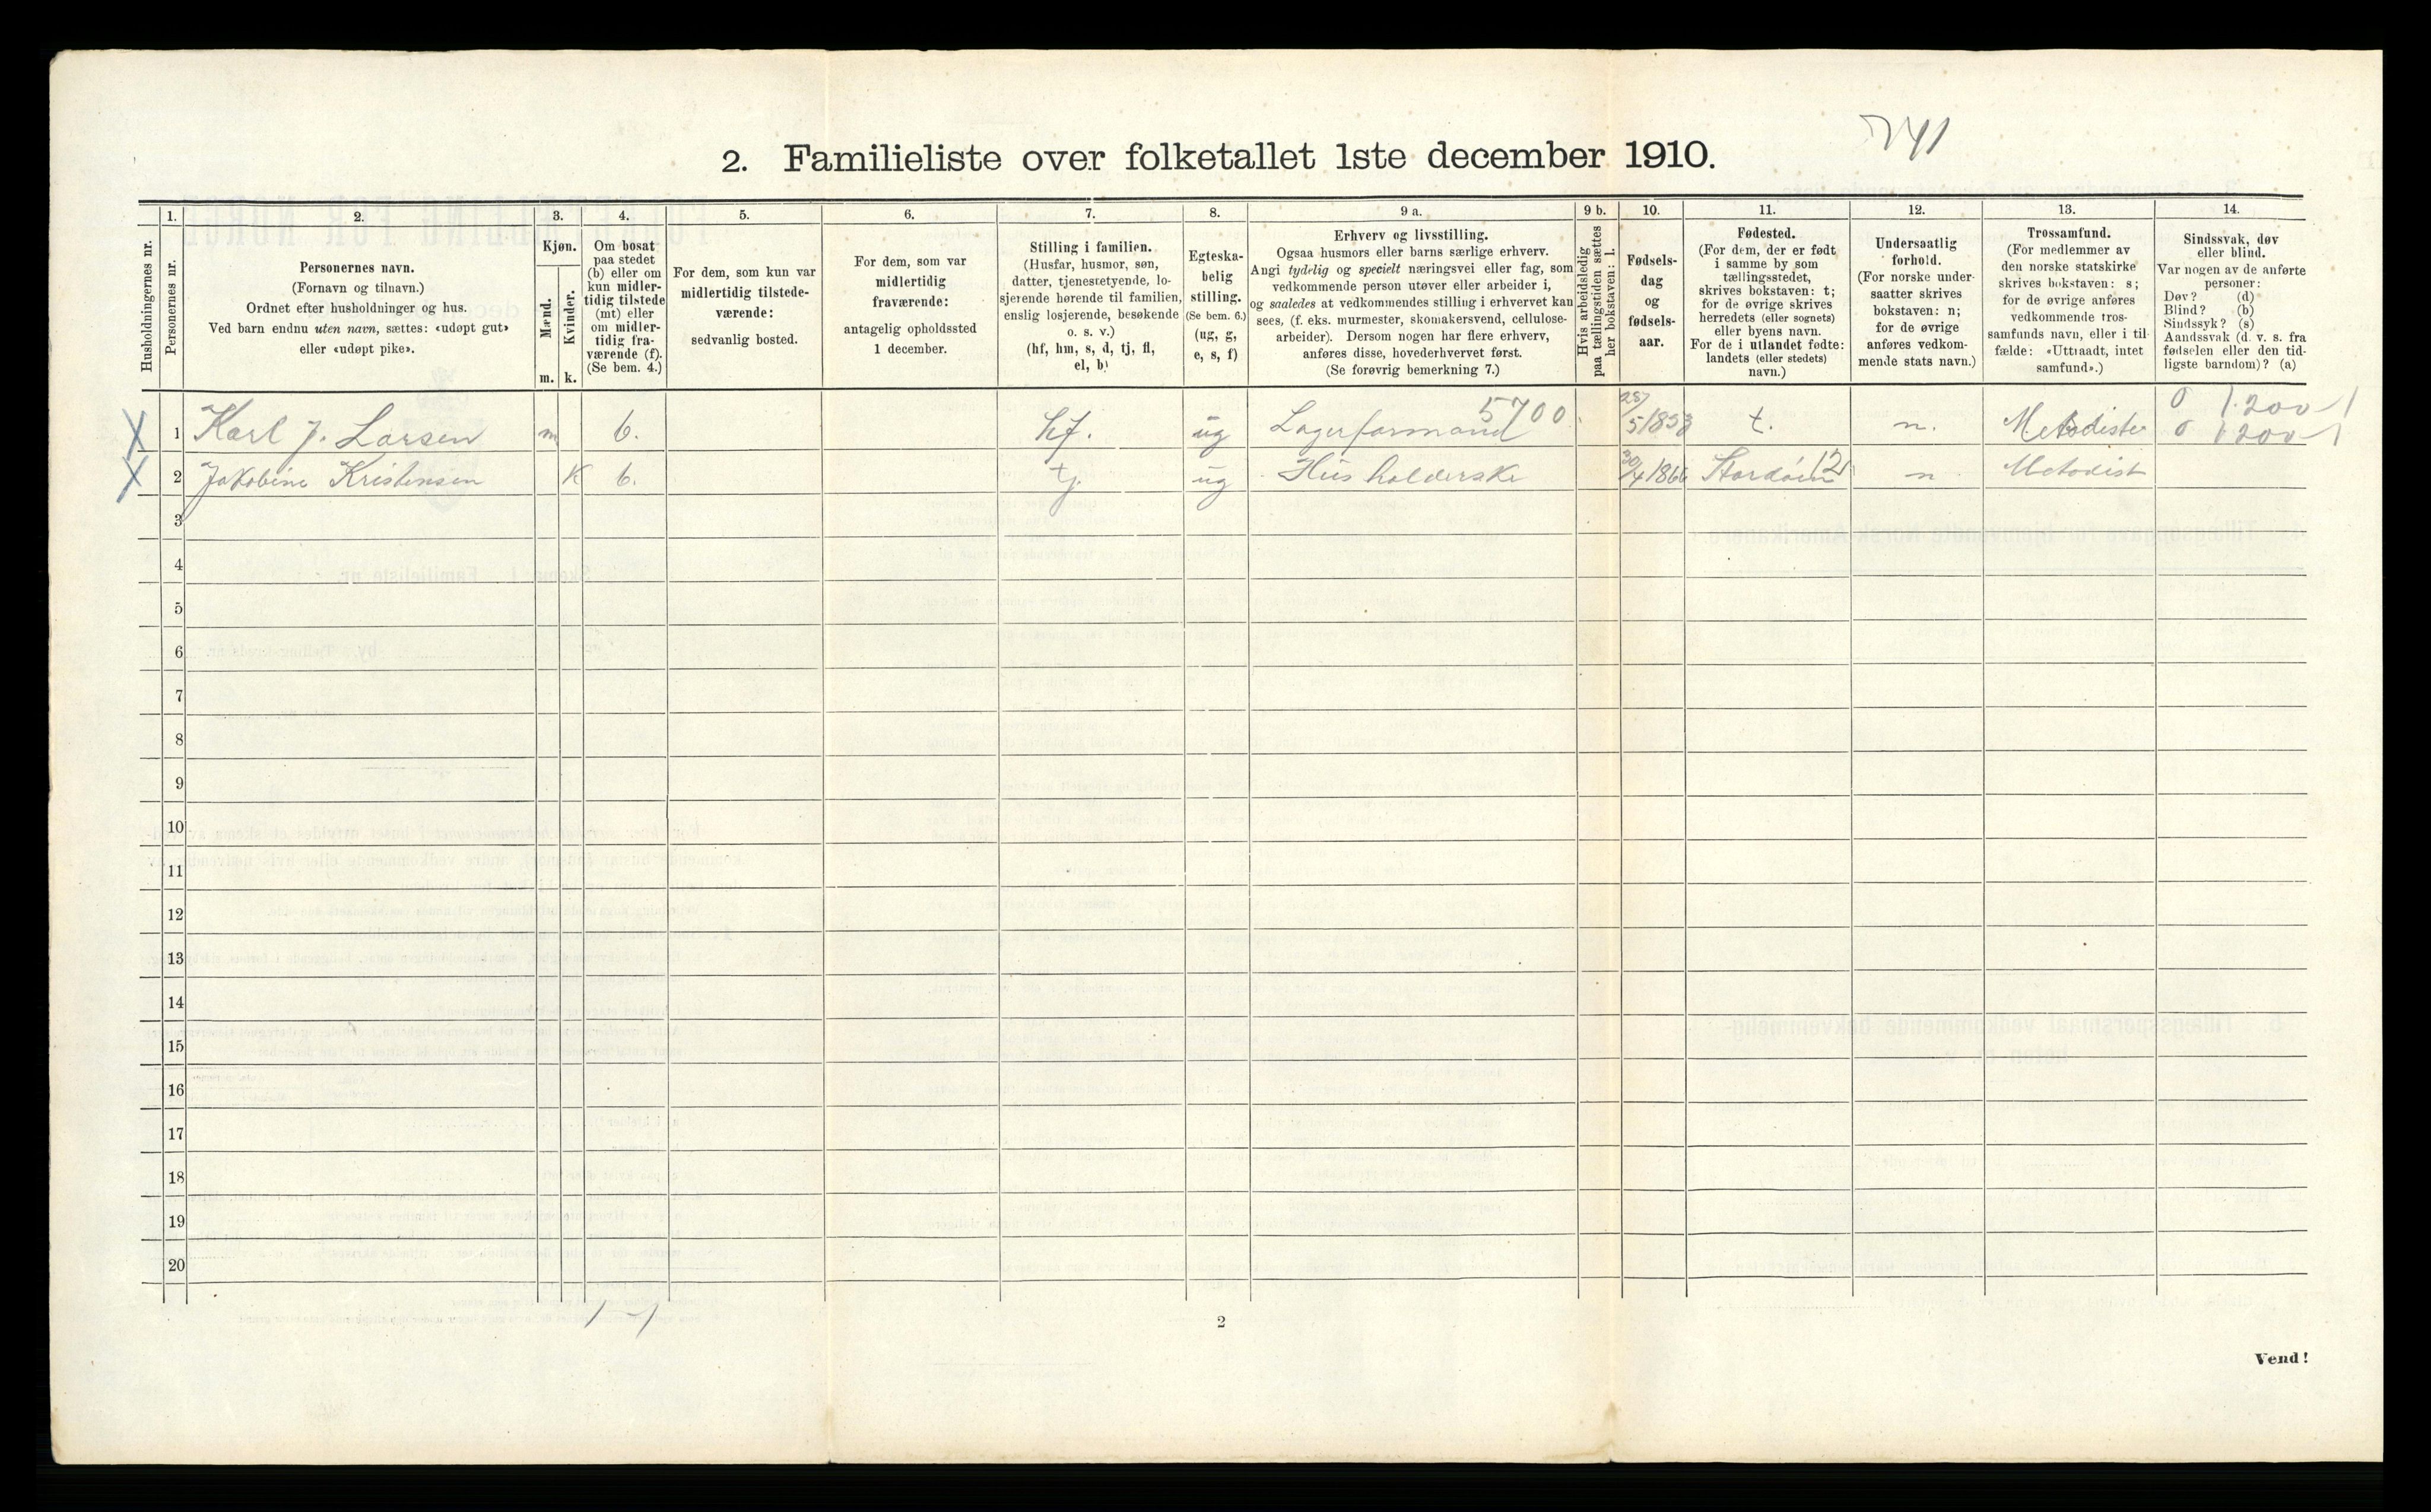 741
2. Familieliste over folketallet 1ste december 1910.
Husholdningernes nr.
1. Personernes nr.
2. Personernes navn.
(Fornavn og tilnavn.)
Ordnet efter husholdninger og hus.
Ved barn endnu uten navn, sættes: «udøpt gut»
eller «udøpt pike».
3. Kjøn.
Mænd. m.
Kvinder. k.
4. Om bosat
paa stedet
(b) eller om
kun midler-
tidig tilstede
(mt) eller
om midler-
tidig fra-
værende (f).
(Se bem. 4.)
5. For dem, som kun var
midlertidig tilstede-
værende:
sedvanlig bosted.
6. For dem, som var
midlertidig
fraværende:
antagelig opholdssted
1 december.
7. Stilling i familien.
(Husfar, husmor, søn,
datter, tjenestetyende, lo-
sjerende hørende til familien,
enslig losjerende, besøkende
o. s. v.)
(hf, hm, s, d, tj, fl,
el, b)
8. Egteska-
belig
stilling.
(Se bem. 6.)
(ug, g,
e, s, f)
9 a. Erhverv og livsstilling.
Ogsaa husmors eller barns særlige erhverv.
Angi tydelig og specielt næringsvei eller fag, som
vedkommende person utøver eller arbeider i,
og saaledes at vedkommendes stilling i erhvervet kan
sees, (f. eks. murmester, skomakersvend, cellulose-
arbeider). Dersom nogen har flere erhverv,
anføres disse, hovederhvervet først.
(Se forøvrig bemerkning 7.)
9 b. Hvis arbeidsledig
paa tællingstiden sættes
her bokstaven: l.
10. Fødsels-
dag
og
fødsels-
aar.
11. Fødested.
(For dem, der er født
i samme by som
tællingsstedet,
skrives bokstaven: t;
for de øvrige skrives
herredets (eller sognets)
eller byens navn.
For de i utlandet fødte:
landets (eller stedets)
navn.)
12. Undersaatlig
forhold.
(For norske under-
saatter skrives
bokstaven: n;
for de øvrige
anføres vedkom-
mende stats navn.)
13. Trossamfund.
(For medlemmer av
den norske statskirke
skrives bokstaven: s;
for de øvrige anføres
vedkommende tros-
samfunds navn, eller i til-
fælde: «Uttraadt, intet
samfund».)
14. Sindssvak, døv
eller blind.
Var nogen av de anførte
personer:
Døv? (d)
Blind? (b)
Sindssyk? (s)
Aandssvak (d. v. s. fra
fødselen eller den tid-
ligste barndom)? (a)
X 1 Karl J. Larsen m b. hf. ug Lagerformand 5700 5/1853 t. n. Metodister
X 2 Jakobine Kristensen K b. tj. ug Husholderske 30/4 1866 12 n Metodist
3
4
5
6
7
8
9
10
11
12
13
14
15
16
17
18
19
20
1-1
2
Vend!